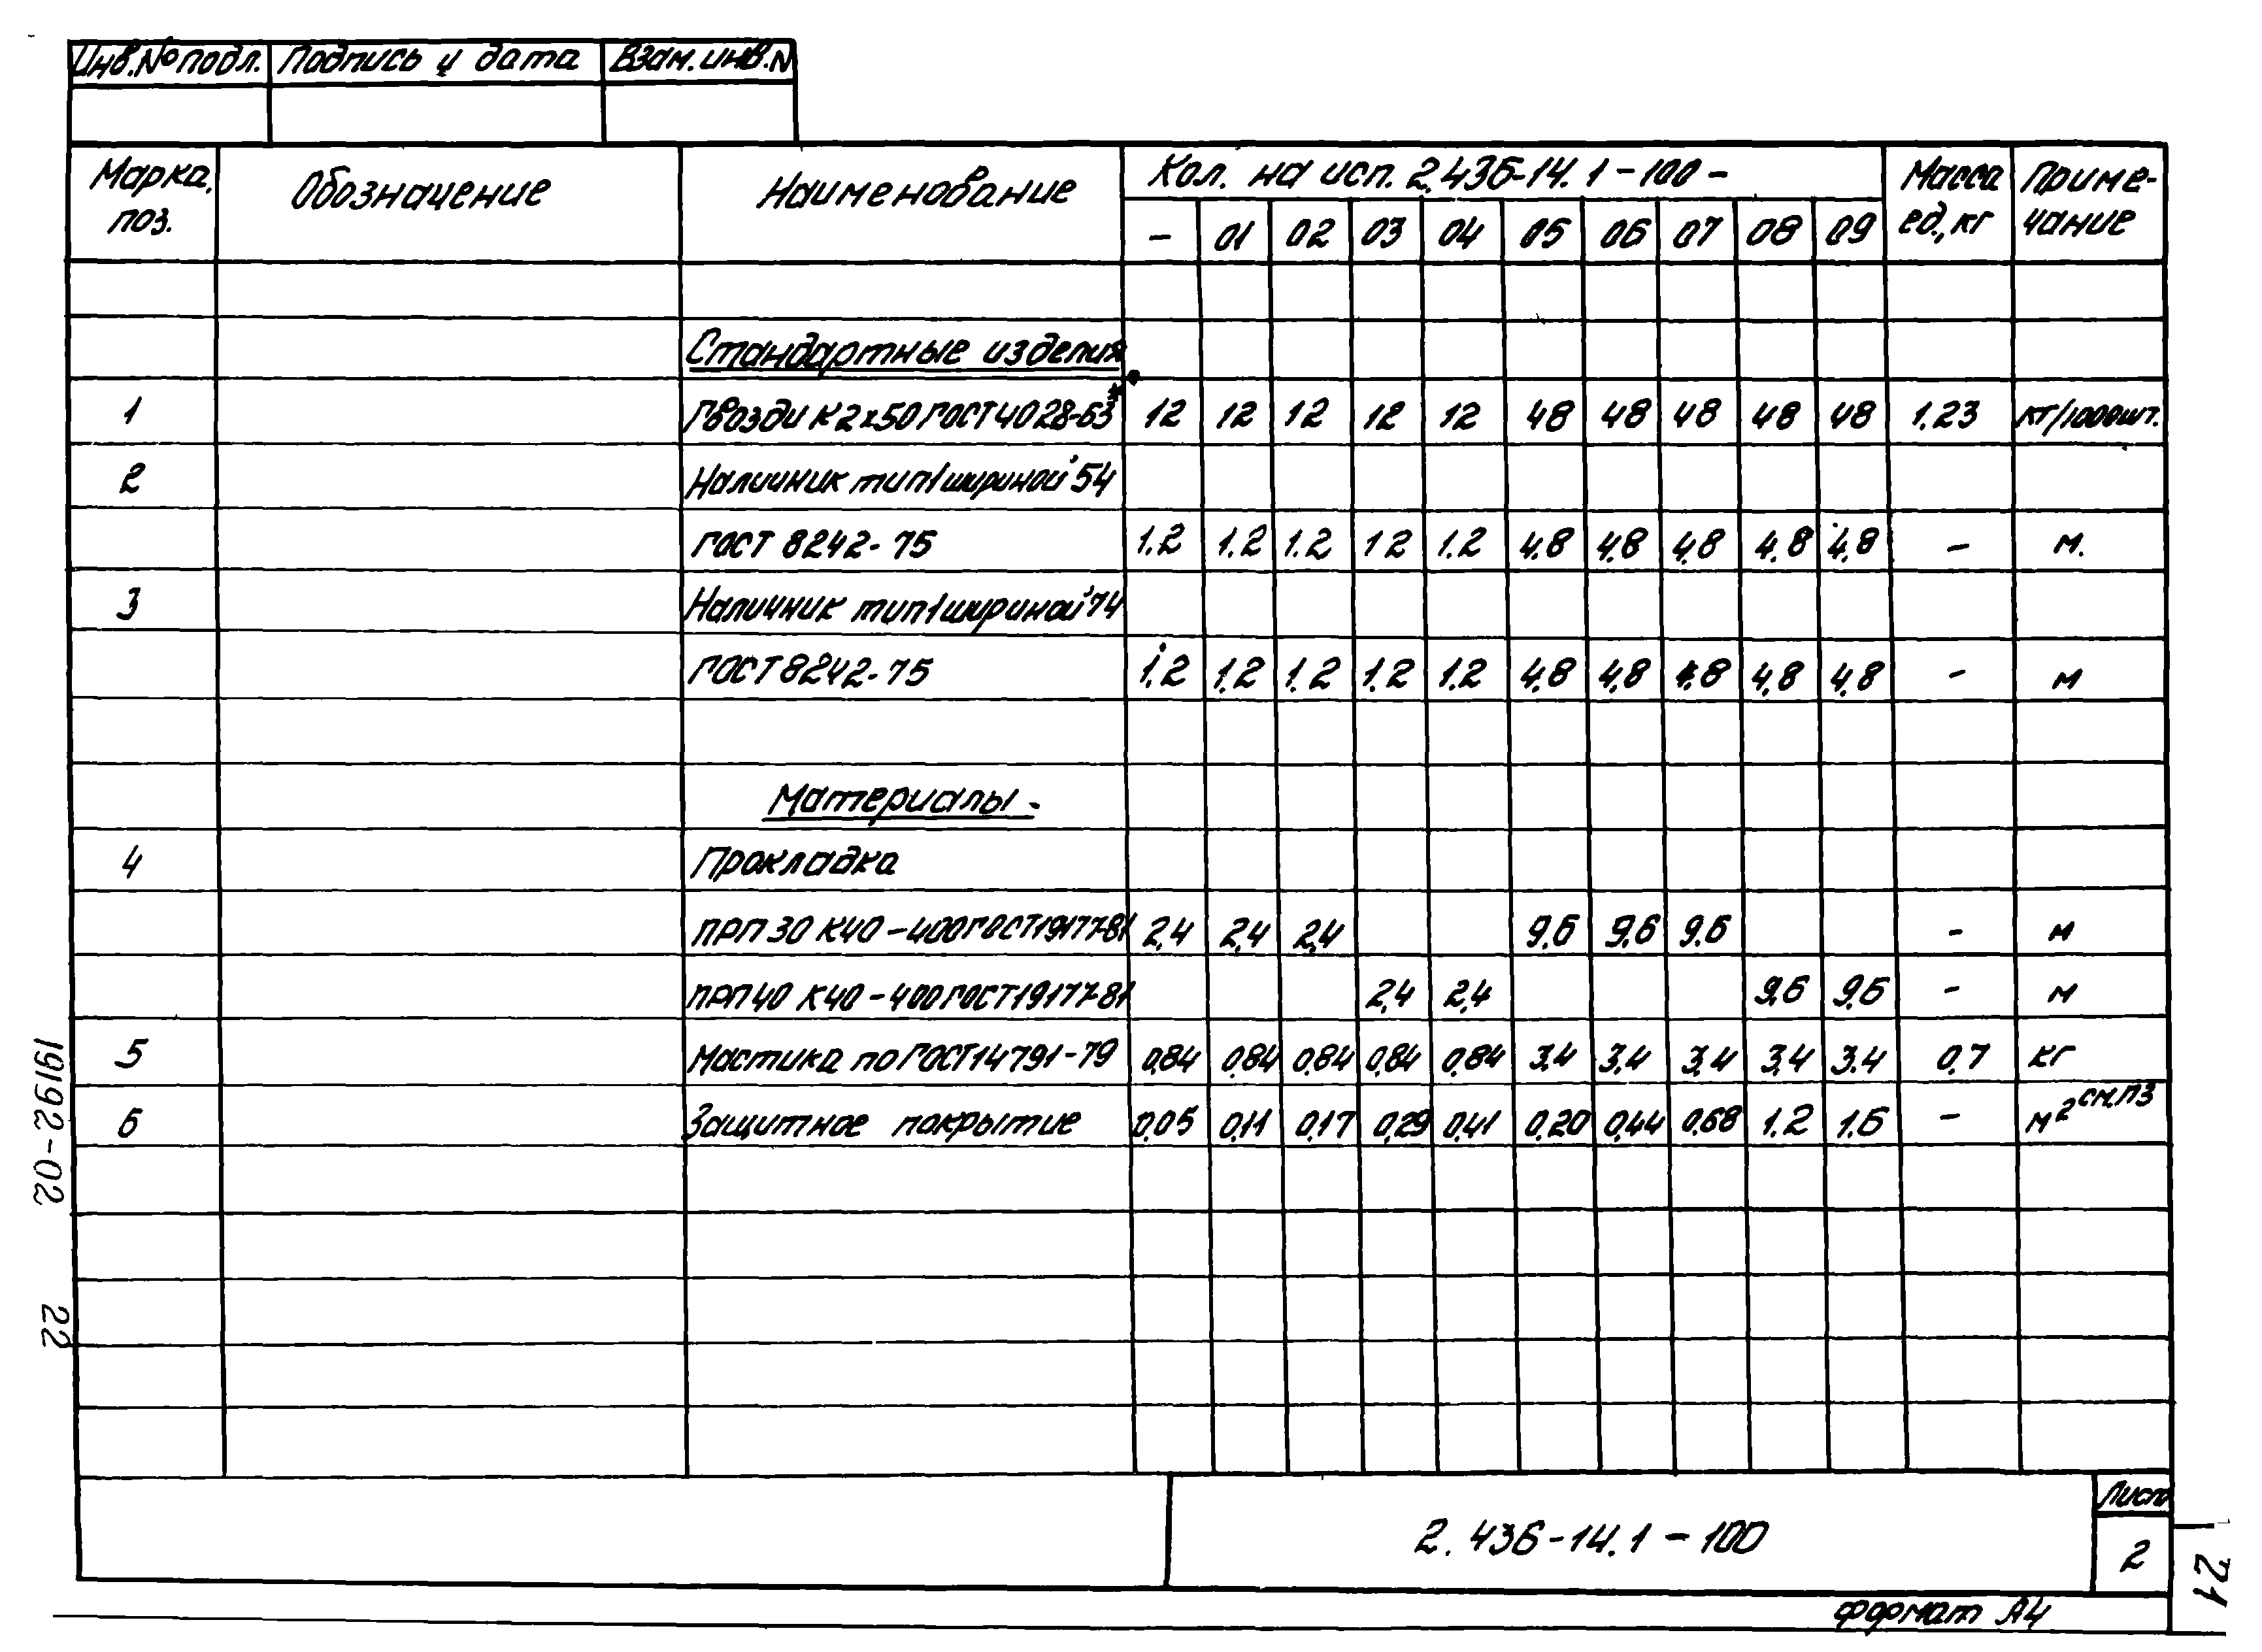 Инв. № подл. Подпись и дата Взам. инв. N
Марка, поз. Обозначение Наименование Кол. на исп. 2.436-14.1-100- Масса ед., кг Приме-чание
- 01 02 03 04 05 06 07 08 09
Стандартные изделия
1 Гвозди К2х50 ГОСТ 4028-63* 12 12 12 12 12 48 48 48 48 48 1.23 кг/1000шт.
2 Наличник тип 1 шириной 54
ГОСТ 8242-75 1.2 1.2 1.2 12 1.2 4.8 4.8 4.8 4.8 4.8 - м.
3 Наличник тип 1 шириной 74
ГОСТ 8242-75 1.2 1.2 1.2 1.2 1.2 4.8 4.8 4.8 4.8 4.8 - м
Материалы
4 Прокладка
ПРП 30 К40-400 ГОСТ 19177-81 2,4 2,4 2,4 9.6 9.6 9.6 - м
ПРП 40 К40-400 ГОСТ 19177-81 2,4 2,4 9.6 9.6 - м
5 Мастика по ГОСТ 14791-79 0,84 0,84 0,84 0,84 0,84 3,4 3,4 3,4 3,4 3.4 0,7 кг
6 Защитное покрытие 0,05 0,11 0,17 0,29 0,41 0,20 0,44 0,68 1.2 1.6 - м² см.ПЗ
19192-02 22
2.436-14.1-100
Лист
2
21
Формат А4